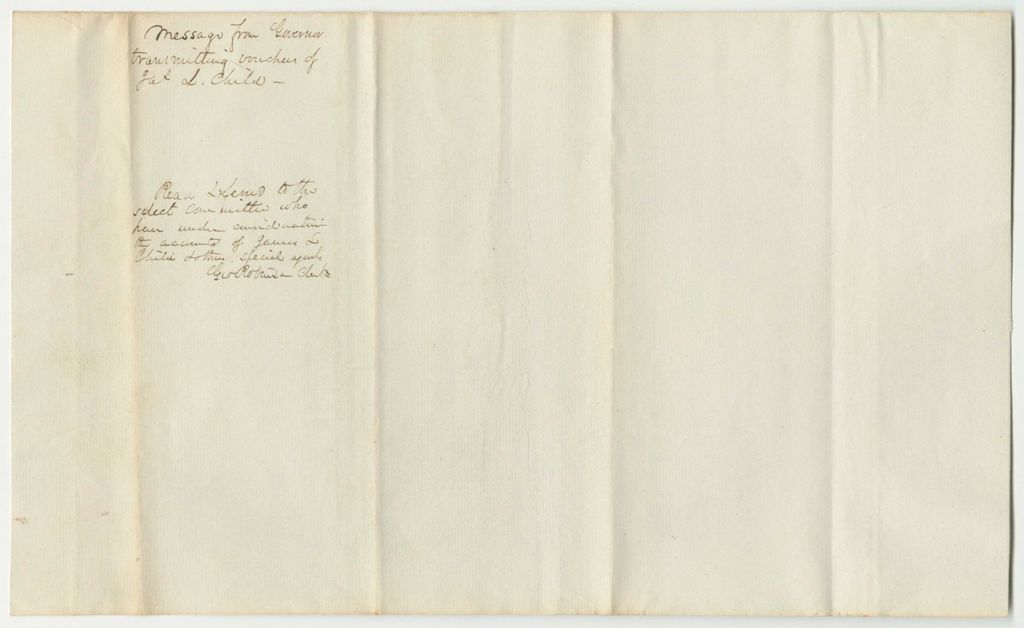 Message from Governor
transmitting vouchers of
Jaˢ L. Child —
Read & referd to the
select committee who
have under consideration
the accounts of James L
Child & other special agents
Geo Robinson Clerk